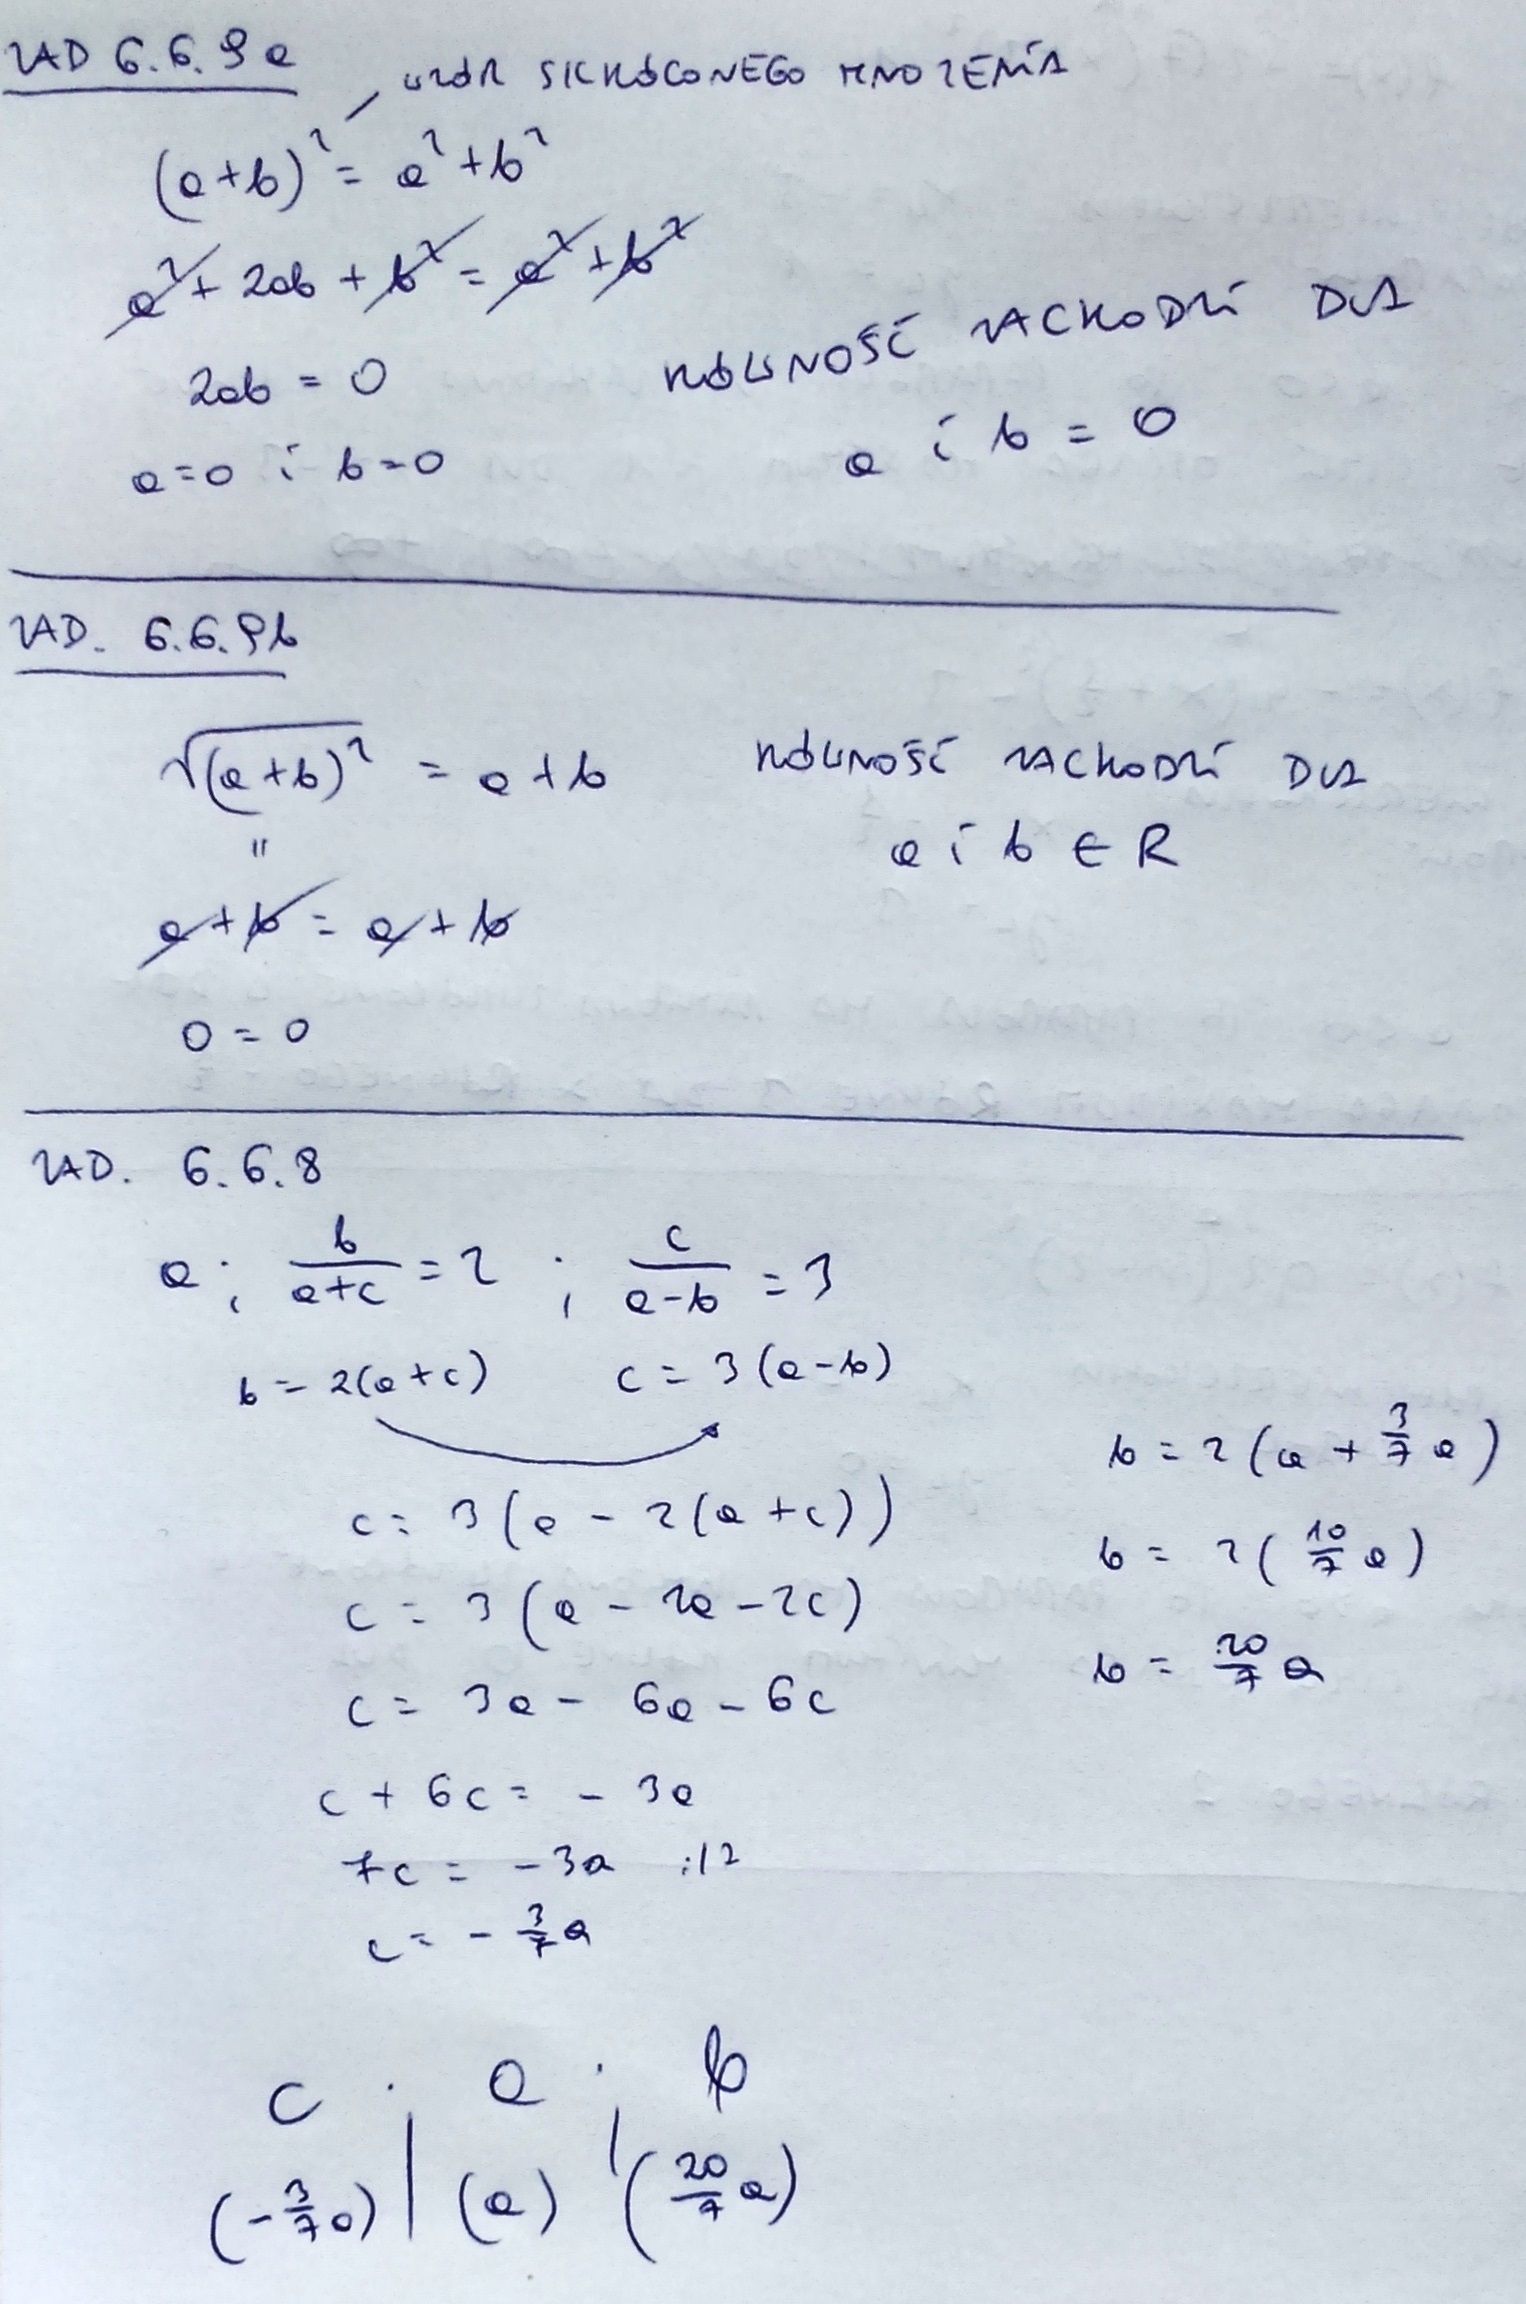 ZAD 6.6.9a
WZÓR SKRÓCONEGO MNOŻENIA
(a+b)² = a² + b²
a² + 2ab + b² = a² + b²
2ab = 0
a=0 i b=0
RÓWNOŚĆ ZACHODZI DLA
a i b = 0
ZAD. 6.6.9b
√(a+b)² = a+b
"
a+b = a+b
0 = 0
RÓWNOŚĆ ZACHODZI DLA
a i b ∈ R
ZAD. 6.6.8
a ; b/(a+c) = 2 ; c/(a-b) = 3
b = 2(a+c) c = 3(a-b)
c = 3(a - 2(a+c))
c = 3(a - 2a - 2c)
c = 3a - 6a - 6c
c + 6c = - 3a
7c = - 3a :12
c = - 3/7 a
b = 2(a + 3/7 a)
b = 2(10/7 a)
b = 20/7 a
c ; a ; b
(-3/7 a) | (a) | (20/7 a)